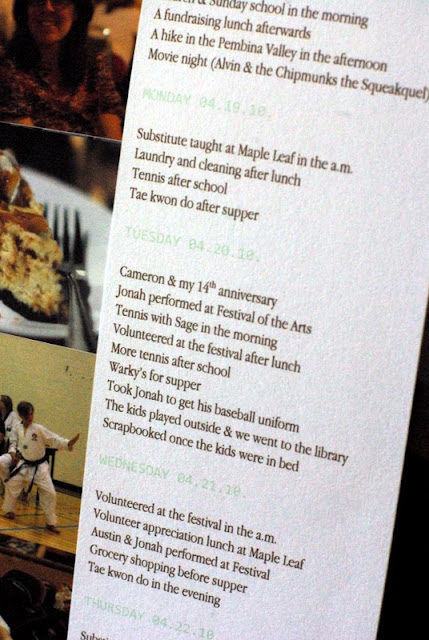 & Sunday school in the morning
A fundraising lunch afterwards
A hike in the Pembina Valley in the afternoon
Movie night (Alvin & the Chipmunks the Squeakquel)
MONDAY 04.19.10.
Substitute taught at Maple Leaf in the a.m.
Laundry and cleaning after lunch
Tennis after school
Tae kwon do after supper
TUESDAY 04.20.10.
Cameron & my 14th anniversary
Jonah performed at Festival of the Arts
Tennis with Sage in the morning
Volunteered at the festival after lunch
More tennis after school
Warky's for supper
Took Jonah to get his baseball uniform
The kids played outside & we went to the library
Scrapbooked once the kids were in bed
WEDNESDAY 04.21.10.
Volunteered at the festival in the a.m.
Volunteer appreciation lunch at Maple Leaf
Austin & Jonah performed at Festival
Grocery shopping before supper
Tae kwon do in the evening
THURSDAY 04.22.10